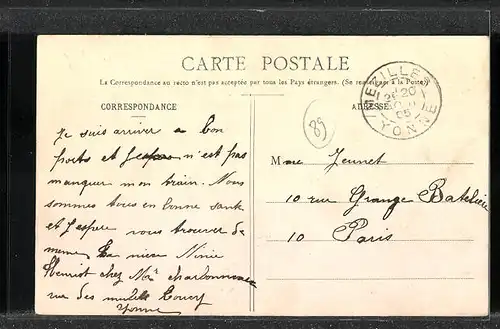 CARTE POSTALE
La Correspondance au recto n'est pas acceptée par tous les Pays étrangers. (Se renseigner à la Poste)
CORRESPONDANCE
ADRESSE
MEZILLES
20
05
YONNE
89
Je suis arriver a bon
ports et J'espere n'est pas
manquer mon train. Nous
sommes tous en bonne sante
et J'espere vous trouver de
meme. La niece Ninie
chez Me Charbonneau
rue des Toucy
Yonne
Mme Jeunet
10 rue Grange Batelière
10 Paris